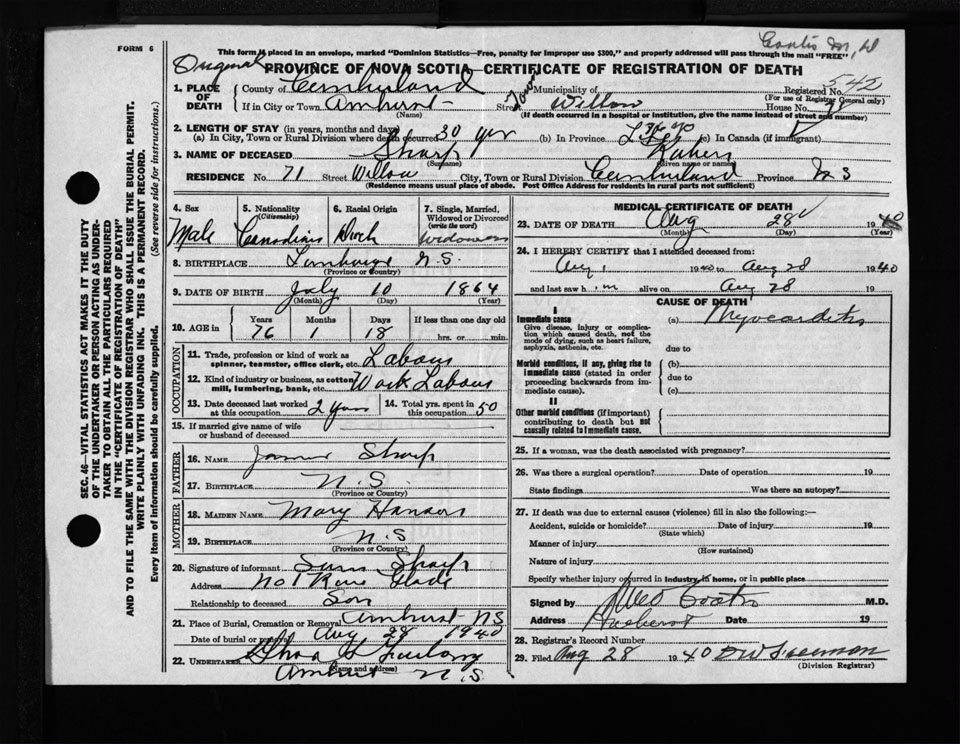 FORM 6
This form if placed in an envelope, marked "Dominion Statistics—Free, penalty for improper use $300," and properly addressed will pass through the mail "FREE"
Original
PROVINCE OF NOVA SCOTIA—CERTIFICATE OF REGISTRATION OF DEATH
Registered No. 542
(For use of Registrar General only)
1. PLACE OF DEATH County of Cumberland Municipality of
If in City or Town Amherst Street Willow House No. 71
(Name) (If death occurred in a hospital or institution, give the name instead of street and number)
2. LENGTH OF STAY (in years, months and days)
(a) In City, Town or Rural Division where death occurred 30 yr (b) In Province Life (c) In Canada (if immigrant)
3. NAME OF DECEASED Sharp
(Surname) (Given name or names)
RESIDENCE No. 71 Street Willow City, Town or Rural Division Cumberland Province N S
(Residence means usual place of abode. Post Office Address for residents in rural parts not sufficient)
4. Sex
Male
5. Nationality
(Citizenship)
Canadian
6. Racial Origin
7. Single, Married, Widowed or Divorced
(write the word)
Widower
8. BIRTHPLACE N.S.
(Province or Country)
9. DATE OF BIRTH July 10 1864
(Month) (Day) (Year)
10. AGE in Years Months Days If less than one day old
76 1 18 hrs. or min.
OCCUPATION
11. Trade, profession or kind of work as spinner, teamster, office clerk, etc. Labour
12. Kind of industry or business, as cotton mill, lumbering, bank, etc. Work Labour
13. Date deceased last worked at this occupation 2 Years
14. Total yrs. spent in this occupation 50
15. If married give name of wife or husband of deceased
FATHER
16. NAME James Sharp
17. BIRTHPLACE N.S.
(Province or Country)
MOTHER
18. MAIDEN NAME Mary
19. BIRTHPLACE N.S
(Province or Country)
20. Signature of informant Sharp
Address No 1
Relationship to deceased Son
21. Place of Burial, Cremation or Removal Amherst NS
Date of burial or removal Aug 28 1940
22. UNDERTAKER
(Name and address)
Amherst N.S
MEDICAL CERTIFICATE OF DEATH
23. DATE OF DEATH Aug 28 1940
(Month) (Day) (Year)
24. I HEREBY CERTIFY that I attended deceased from:
Aug 1 1940 to Aug 28 1940
and last saw h im alive on Aug 28 19
CAUSE OF DEATH
I
Immediate cause (a) Myocarditis
Give disease, injury or complication which caused death, not the mode of dying, such as heart failure, asphyxia, asthenia, etc.
due to
Morbid conditions, if any, giving rise to immediate cause (stated in order proceeding backwards from immediate cause).
(b)
due to
(c)
II
Other morbid conditions (if important) contributing to death but not causally related to immediate cause.
25. If a woman, was the death associated with pregnancy?
26. Was there a surgical operation? Date of operation 19
State findings Was there an autopsy?
27. If death was due to external causes (violence) fill in also the following:—
Accident, suicide or homicide? Date of injury 19
(State which)
Manner of injury
(How sustained)
Nature of injury
Specify whether injury occurred in industry, in home, or in public place
Signed by M.D.
Address Amherst Date 19
28. Registrar's Record Number
29. Filed Aug 28 1940
(Division Registrar)
SEC. 46—VITAL STATISTICS ACT MAKES IT THE DUTY
OF THE UNDERTAKER OR PERSON ACTING AS UNDERTAKER TO OBTAIN ALL THE PARTICULARS REQUIRED
IN THE "CERTIFICATE OF REGISTRATION OF DEATH" AND TO FILE THE SAME WITH THE DIVISION REGISTRAR WHO SHALL ISSUE THE BURIAL PERMIT.
WRITE PLAINLY WITH UNFADING INK. THIS IS A PERMANENT RECORD.
Every item of information should be carefully supplied. (See reverse side for instructions.)